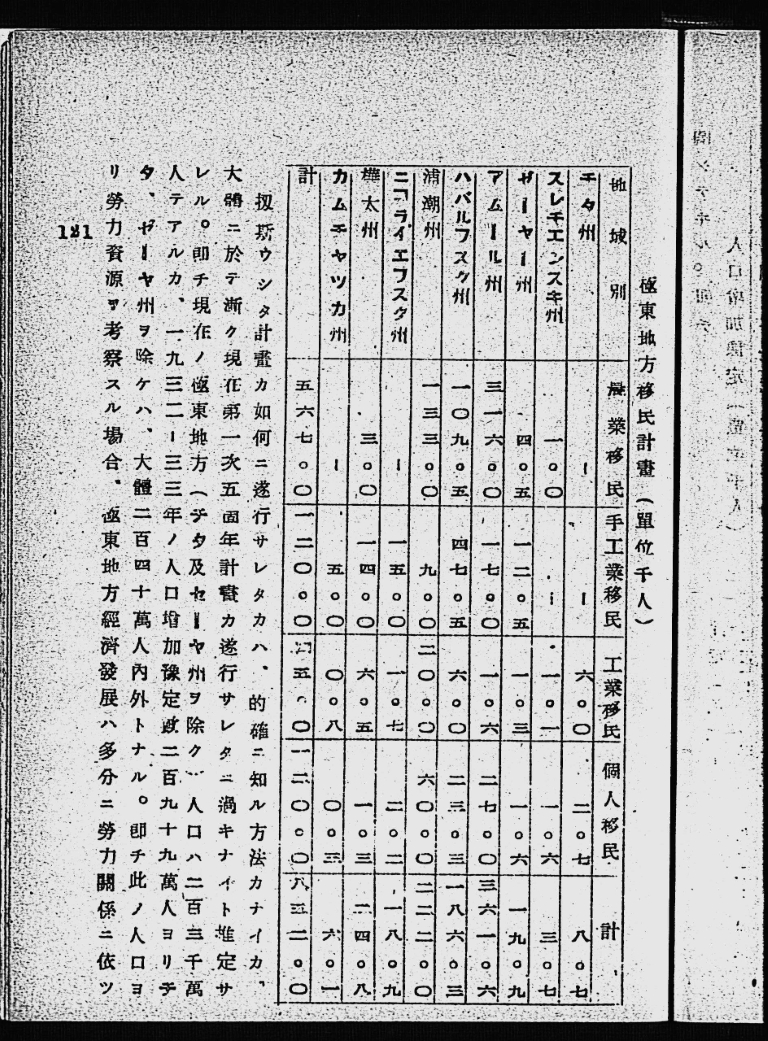 極東地方移民計畫(單位千人)
地域別 農業移民 手工業移民 工業移民 個人移民 計
チタ州 ー ー 六。〇 二。七 八。七
スレチエンスキ州 一。〇 ー 一。一 一。六 三。七
ゼーヤー州 四。五 一二。五 一。三 一。六 一九。九
アムール州 三一六。〇 一七。〇 一。六 二七。〇 三六一。六
ハバルフスク州 一〇九。五 四七。五 六。〇 二三。三 一八六。三
浦潮州 一三三。〇 九。〇 二〇。〇 六〇。〇 二二二。〇
ニコライエフスタ州 ー 一五。〇 一。七 二。二 一八。九
樺太州 三。〇 一四。〇 六。五 一。三 二四。八
カムチヤツカ州 ー 五。〇 〇。八 〇。三 六。一
計 五六七。〇 一二〇。〇 四五。〇 一二〇。〇 八三二。〇
扨斯ウシタ計畫カ如何ニ遂行サレタカハ、的確ニ知ル方法カナイカ、
大體ニ於テ漸ク現在第一次五箇年計畫カ遂行サレタニ過キナイト推定サ
レル。即チ現在ノ極東地方(チタ及セーヤ州ヲ除ク)人口ハ二百三千萬
人テアルカ、一九三二ー三三年ノ人口增加豫定數二百九十九萬人ヨリチ
タ、ゼーヤ州ヲ除ケハ、大體二百四十萬人內外トナル。即チ此ノ人口ヨ
リ勞力資源ヲ考察スル場合、極東地方經濟發展ハ多分ニ勞力關係ニ依ツ
121